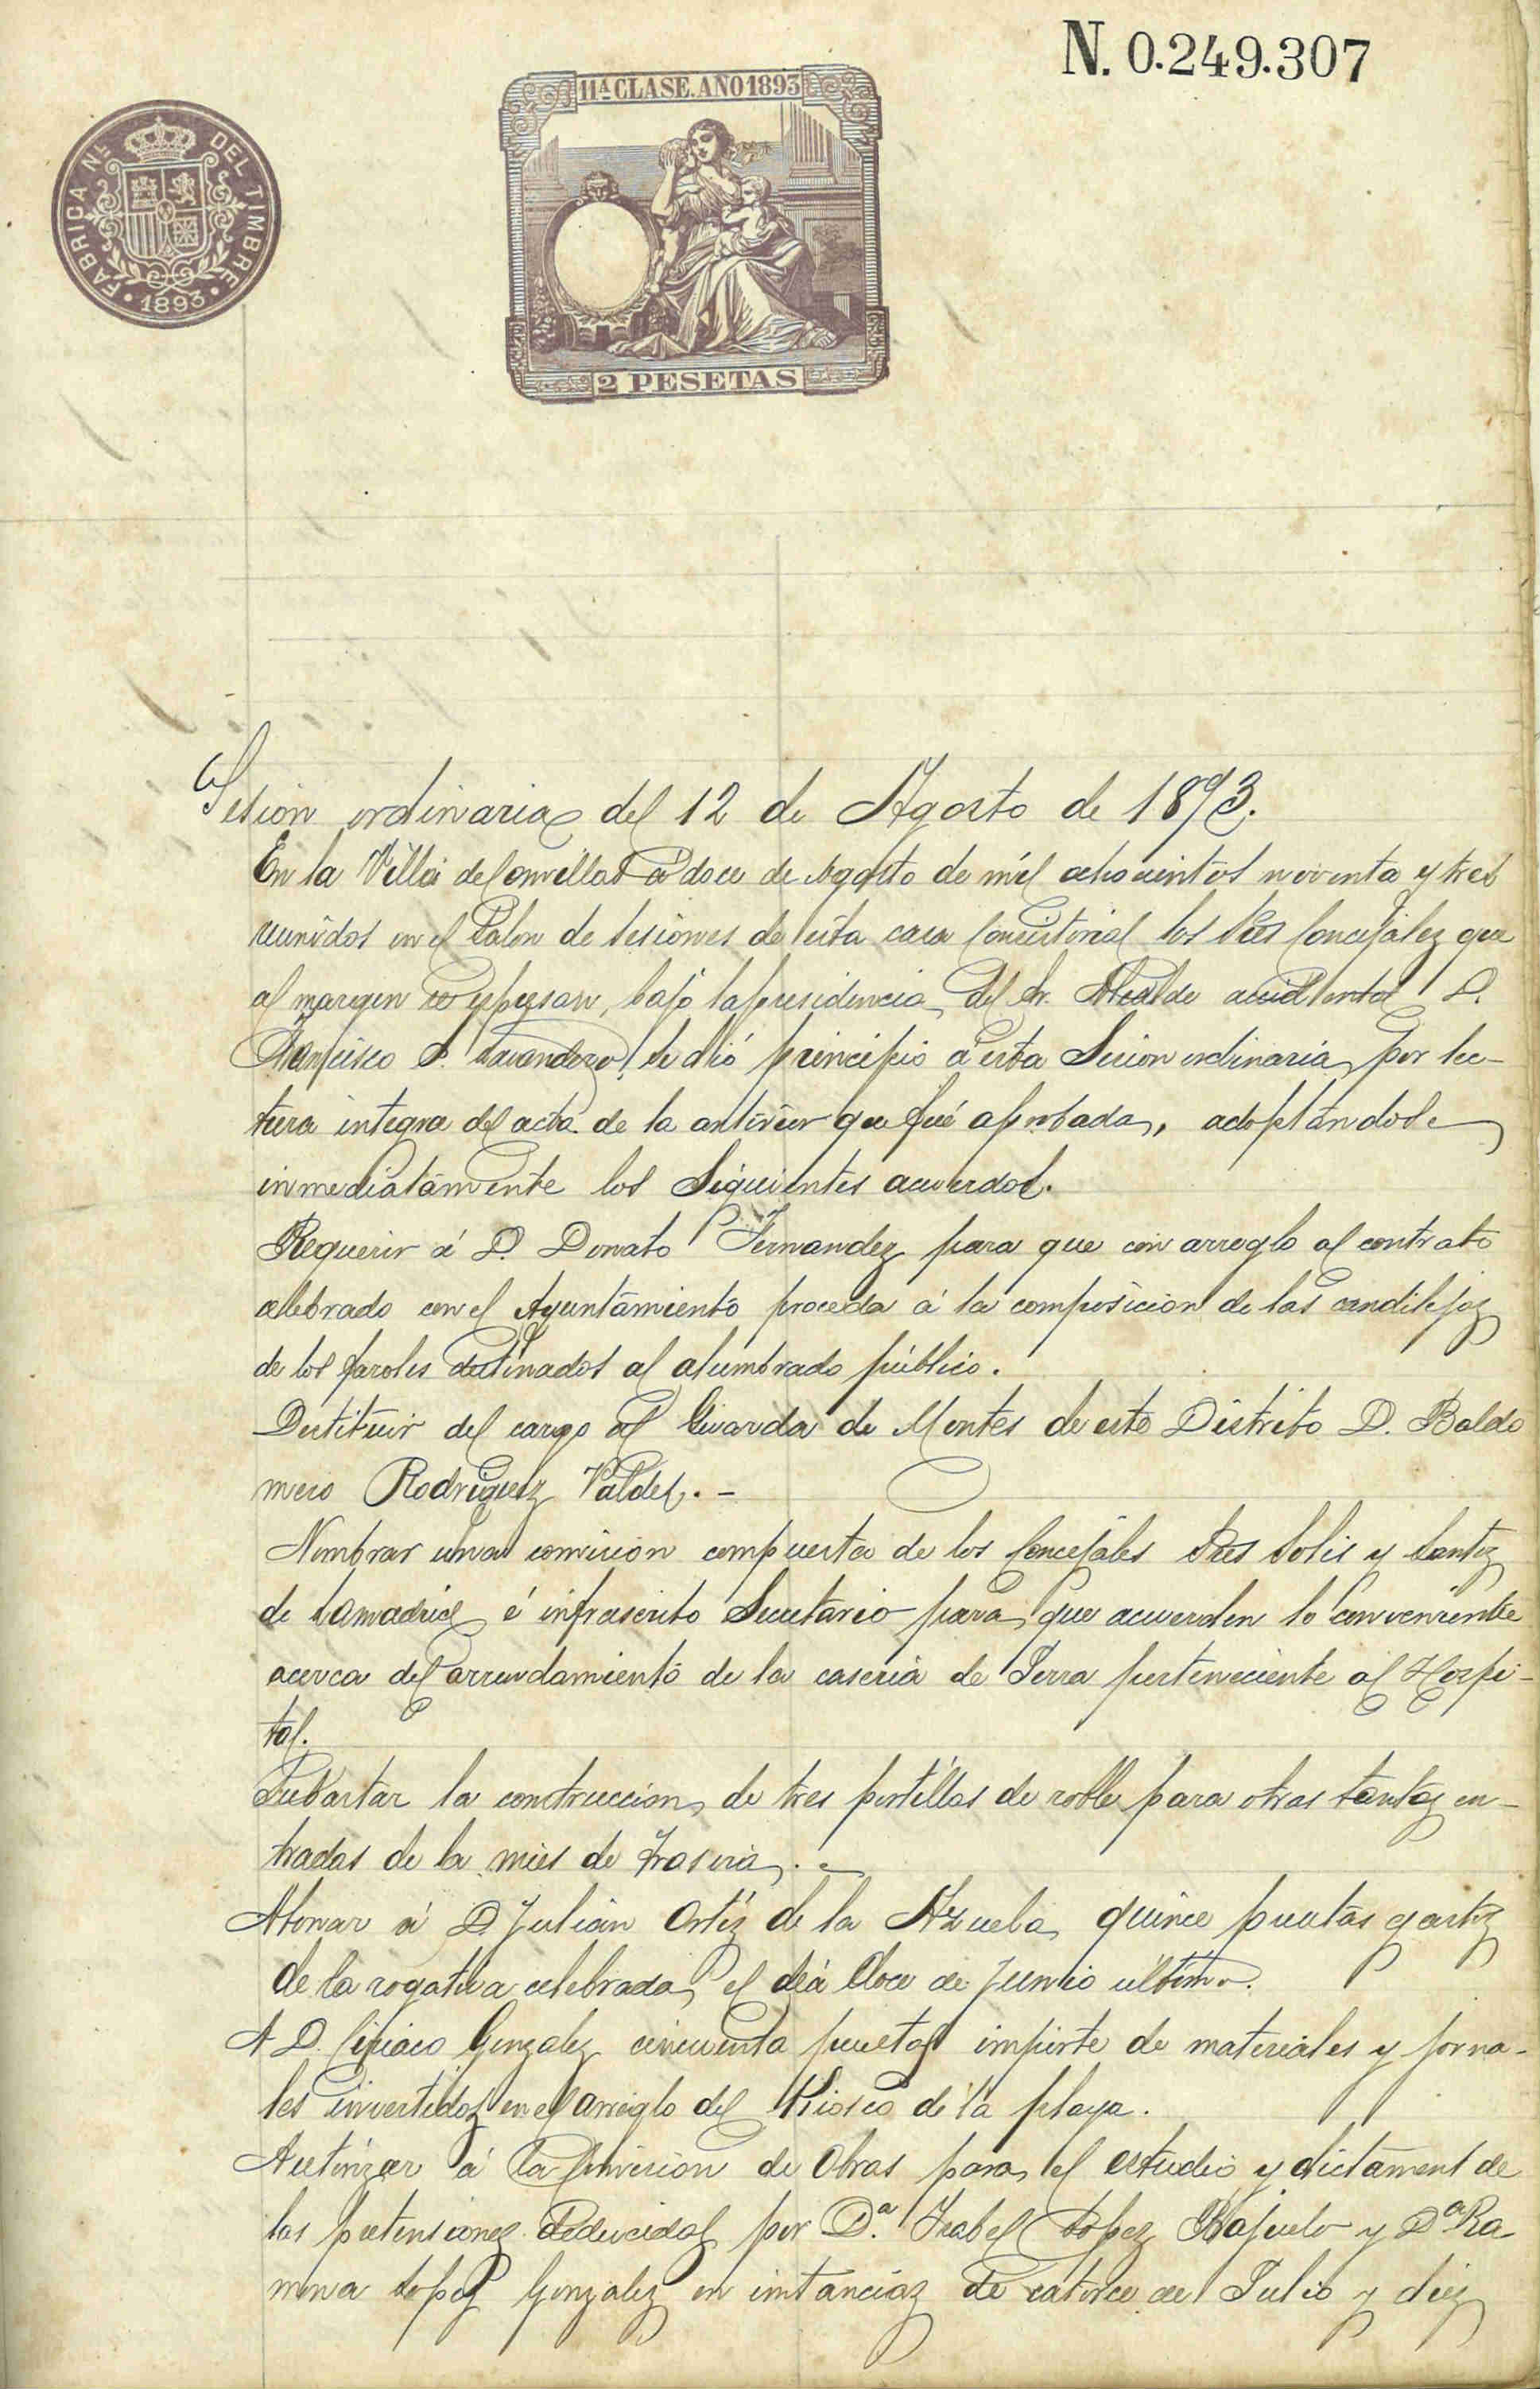 N. 0.249.307
11ª CLASE. AÑO 1893
FABRICA NL. DEL TIMBRE
· 1893 ·
2 PESETAS
Sesion ordinaria del 12 de Agosto de 1893.
En la Villa de Comillas á doce de Agosto de mil ochocientos noventa y tres
reunidos en el Salon de sesiones de esta casa Consistorial los Sres Concejales que
al margen se expresan, bajo la presidencia del Sr. Alcalde accidental D.
Francisco S. Lavandero, se dió principio á esta Sesion ordinaria por lec-
tura integra del acta de la anterior que fué aprobada, adoptándose
inmediatamente los siguientes acuerdos.
Requerir á D. Donato Fernandez para que con arreglo al contrato
celebrado con el Ayuntamiento proceda á la composicion de las candilejas
de los faroles destinados al alumbrado público.
Destituir del cargo al Guarda de Montes de este Distrito D. Baldo
mero Rodriguez Valdes. -
Nombrar una comision compuesta de los Concejales Sres Solis y Santos
de Lamadrid é infrascrito Secretario para que acuerden lo conveniente
acerca del arrendamiento de la caseria de Serra perteneciente al Hospi-
tal.
Subastar la construccion de tres portillas de roble para otras tantas en-
tradas de la mies de Trasvia. -
Abonar á D. Julián Ortíz de la Azuela quince pesetas gastos
de la rogativa celebrada el dia doce de Junio último.
A D. Ciriaco Gonzalez cincuenta pesetas importe de materiales y jorna-
les invertidos en el arreglo del Kiosco de la playa.
Autorizar á la Comision de Obras para el estudio y dictamen de
las pretensiones deducidas por D.ª Isabel Lopez Bajuelo y D.ª Ra
mona Lopez Gonzalez en instancias de catorce de Julio y diez